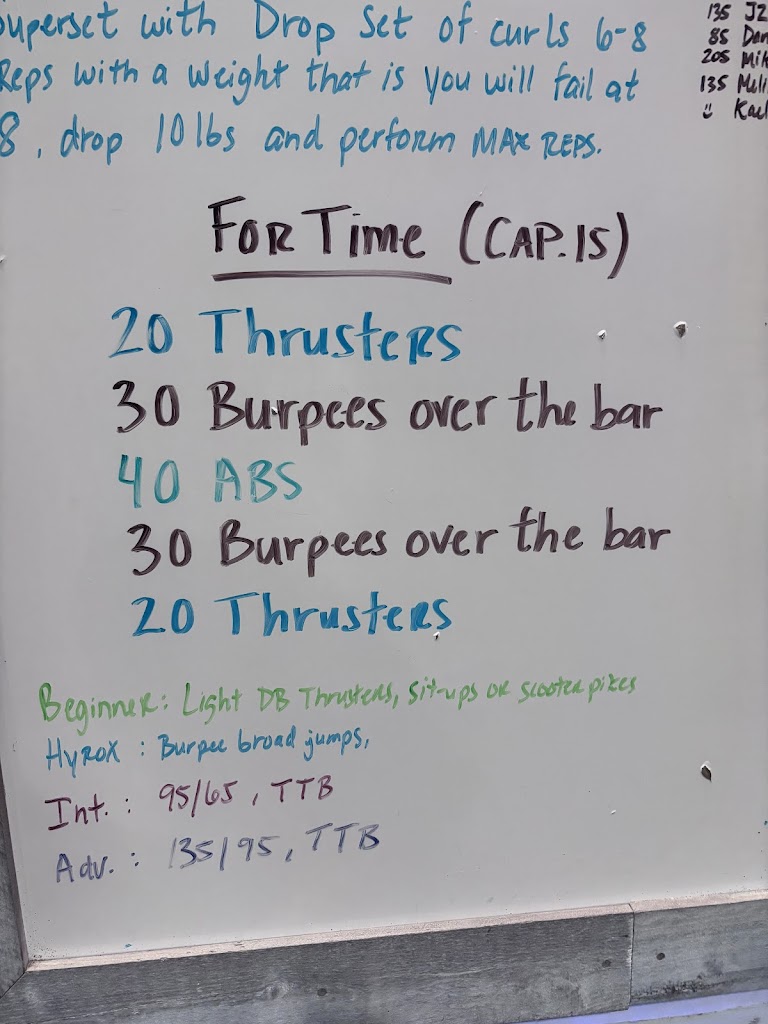 Superset with Drop Set of curls 6-8
Reps with a weight that is you will fail at
8, drop 10 lbs and perform MAX REPS.
135 JZ
85
205
135
For Time (CAP.15)
20 Thrusters
30 Burpees over the bar
40 ABS
30 Burpees over the bar
20 Thrusters
Beginner: Light DB Thrusters, Sit-ups or scooter pikes
Hyrox : Burpee broad jumps,
Int. : 95/65, TTB
Adv. : 135/95, TTB